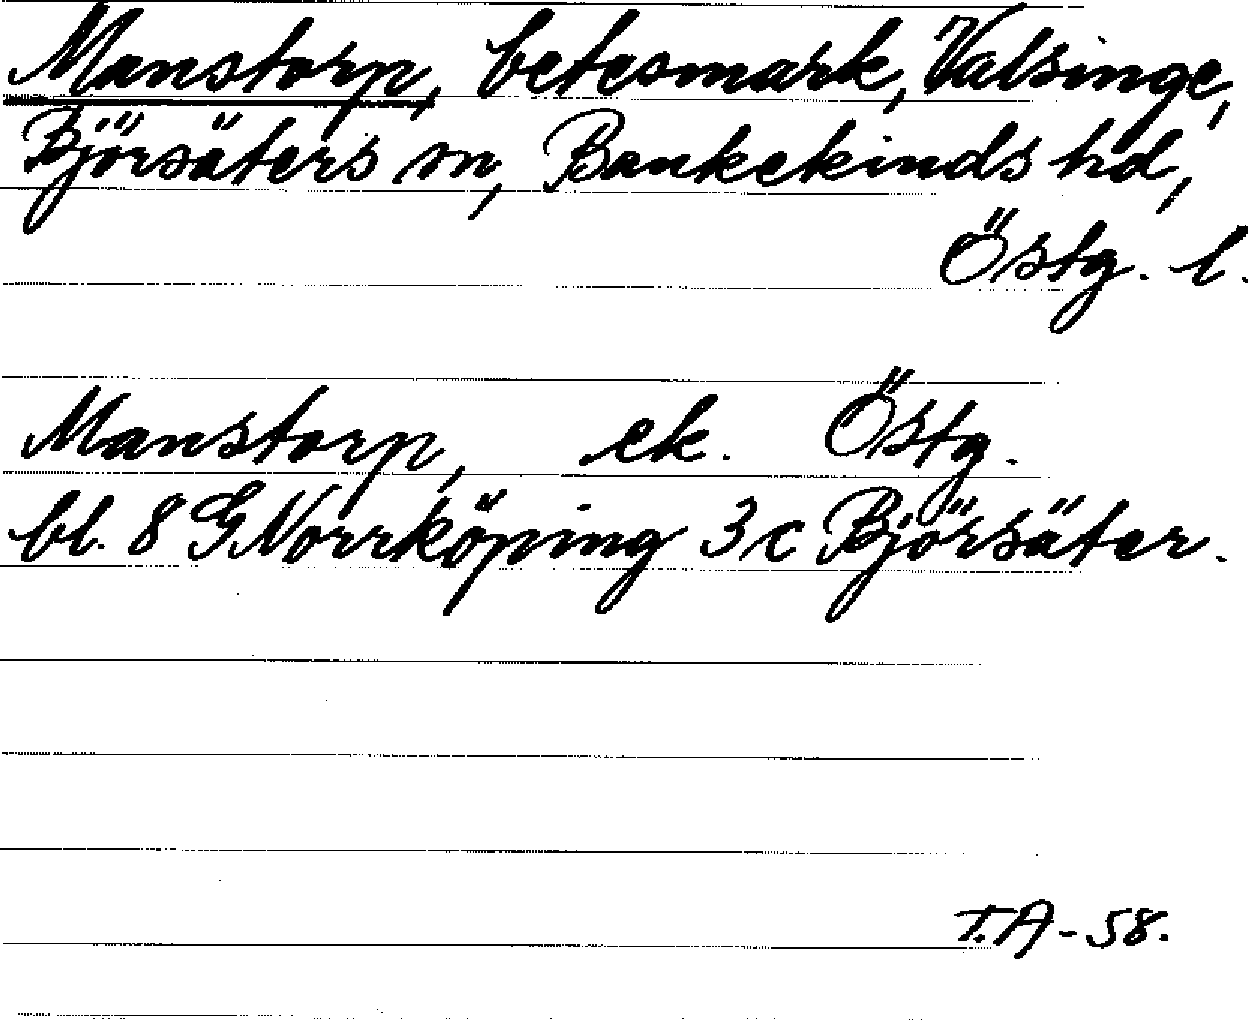 Manstorp, betesmark, Valsinge,
Björsäters sn, Bankekinds hd,
Östg. l.
Manstorp, ek. Östg.
bl. 8 G Norrköping 3 c Björsäter.
T.A-58.